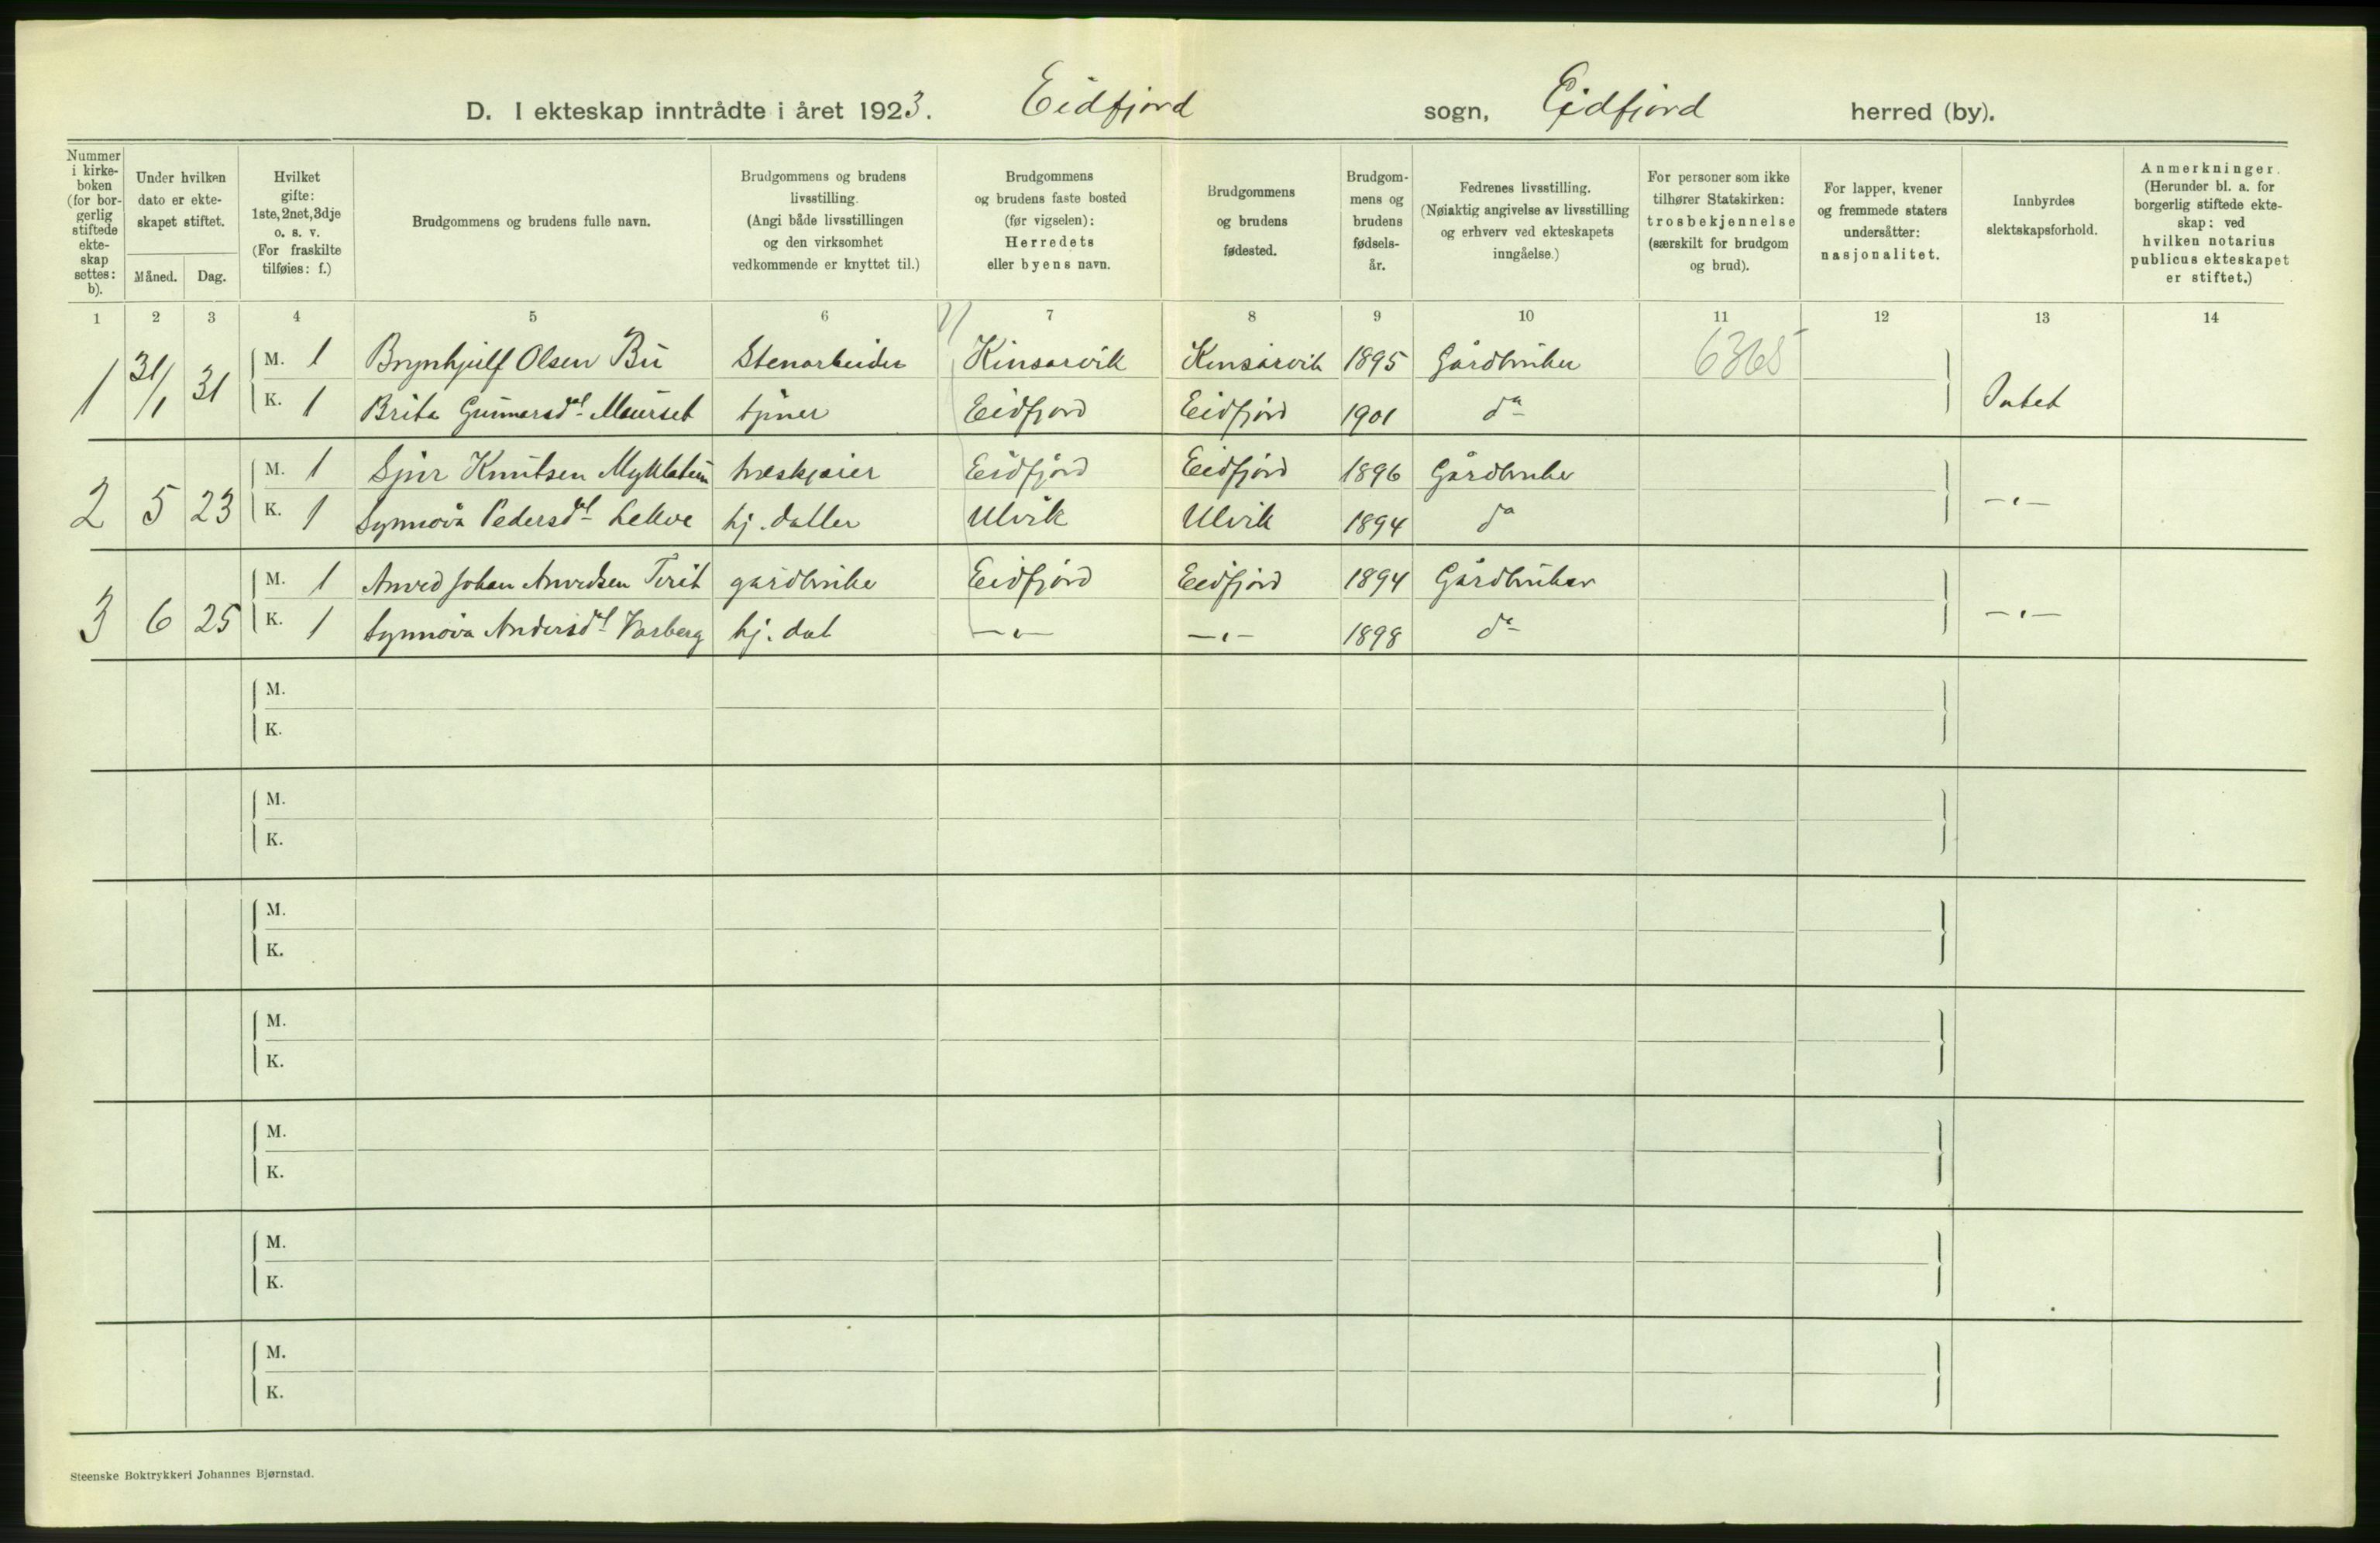 D. I ekteskap inntrådte i året 1923. Eidfjord sogn, Eidfjord herred (by).
Nummer i kirkeboken (for borgerlig stiftede ekteskap settes: b).
Under hvilken dato er ekteskapet stiftet.
Måned. Dag.
Hvilket gifte: 1ste, 2net, 3dje o. s. v. (For fraskilte tilføies: f.)
Brudgommens og brudens fulle navn.
Brudgommens og brudens livsstilling. (Angi både livsstillingen og den virksomhet vedkommende er knyttet til.)
Brudgommens og brudens faste bosted (før vigselen): Herredets eller byens navn.
Brudgommens og brudens fødested.
Brudgommens og brudens fødselsår.
Fedrenes livsstilling. (Nøiaktig angivelse av livsstilling og erhverv ved ekteskapets inngåelse.)
For personer som ikke tilhører Statskirken: trosbekjennelse (særskilt for brudgom og brud).
For lapper, kvener og fremmede staters undersåtter: nasjonalitet.
Innbyrdes slektskapsforhold.
Anmerkninger. (Herunder bl. a. for borgerlig stiftede ekteskap: ved hvilken notarius publicus ekteskapet er stiftet.)
1 2 3 4 5 6 7 8 9 10 11 12 13 14
1 31/1 31 M. 1 Brynhjulf Olsen Bu Stenarbeider Kinsarvik Kinsarvik 1895 Gårdbruker 6365
K. 1 Brita Gunnarsdtr Maurset tjener Eidfjord Eidfjord 1901 do Intet
2 5 23 M. 1 Sjur Knutsen Myklatun træskjærer Eidfjord Eidfjord 1896 Gårdbruker
K. 1 Synnøva Pedersdtr Lekve hj. datter Ulvik Ulvik 1894 do -„-
3 6 25 M. 1 Anved Johan Anvedsen Tveit gårdbruker Eidfjord Eidfjord 1894 Gårdbruker
K. 1 Synnøva Andersdtr Varberg hj. dat -„- -„- 1898 do -„-
M.
K.
M.
K.
M.
K.
M.
K.
M.
K.
M.
K.
M.
K.
Steenske Boktrykkeri Johannes Bjørnstad.